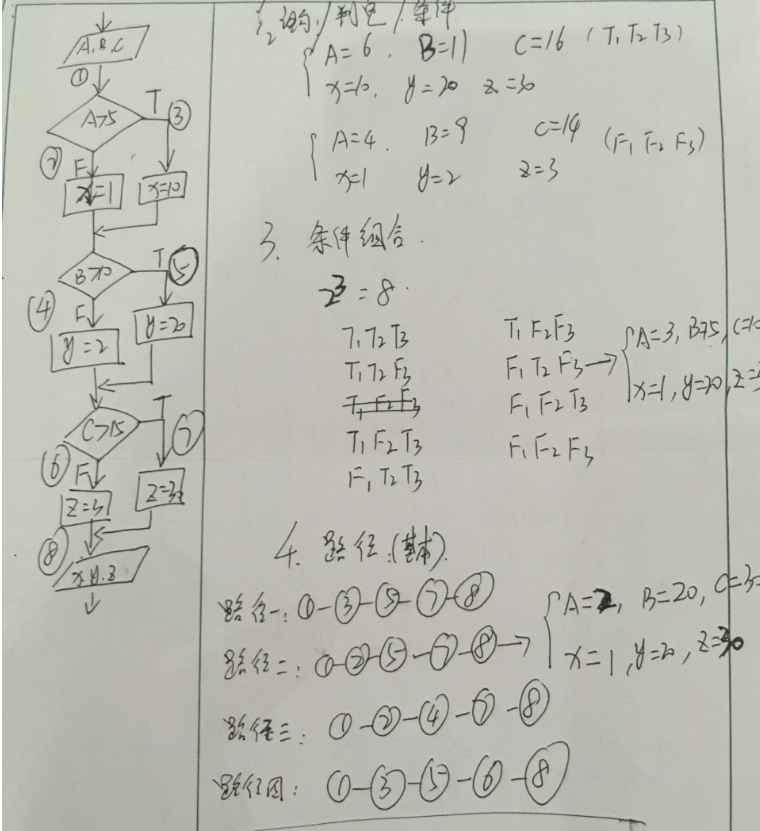 A,B,C
①
A>5 T ③
② F
x=1 x=10
B>10 T ⑤
④ F
y=2 y=20
C>15 T ⑦
⑥ F
z=3 z=30
⑧
x,y,z
2 语句/判定/条件
A=6, B=11 C=16 (T₁T₂T₃)
x=10, y=20 z=30
A=4, B=9 C=14 (F₁F₂F₃)
x=1 y=2 z=3
3. 条件组合.
2³=8.
T₁T₂T₃ T₁F₂F₃
T₁T₂F₃ F₁T₂F₃→ A=3, B=15, C=10
T₁F₂F₃ F₁F₂T₃ x=1, y=20, z=3
T₁F₂T₃ F₁F₂F₃
F₁T₂T₃
4. 路径:(基本).
路径一: ①-③-⑤-⑦-⑧
A=2, B=20, C=30
路径二: ①-②-⑤-⑦-⑧→ x=1, y=20, z=30
路径三: ①-②-④-⑦-⑧
路径四: ①-③-⑤-⑥-⑧